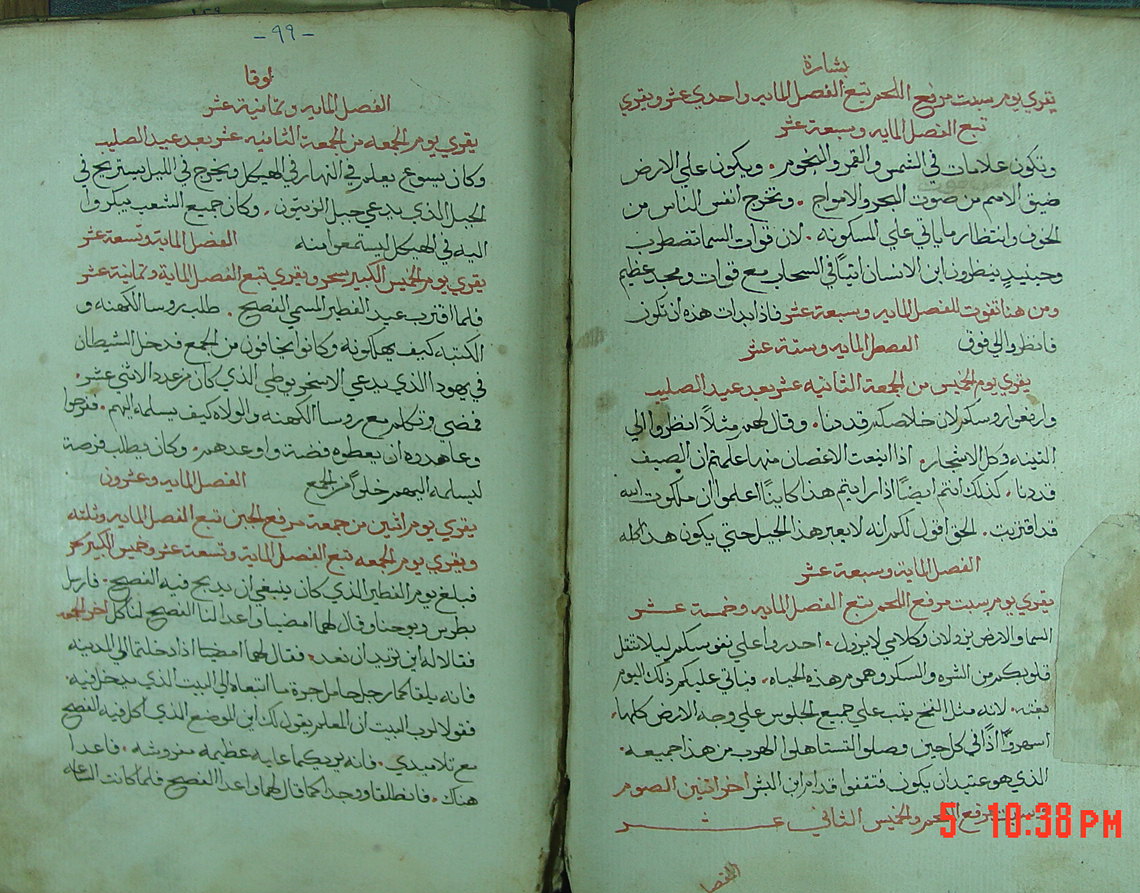 بشارة
يقري يوم سبت مرفع اللحم تبع الفصل المايه واحدي عشر ويقري
تبع الفصل المايه وسبعة عشر
وتكون علامات في الشمس والقمر والنجوم . ويكون علي الارض
ضيق الامم من صوت البحر والامواج . وتخرج انفس الناس من
الخوف وانتظار ما ياتي علي المسكونه . لان قوات السما تضطرب
وحينيدٍ ينظرون ابن الانسان اتيًا في السحاب مع قوات ومجد عظيم
ومن هنا تفوت للفصل المايه وسبعة عشر فاذا بدات هذه ان تكون
فانظروا الي فوق الفصل المايه وستة عشر
يقري يوم الخميس من الجمعة الثانيه عشر بعد عيد الصليب
وارفعوا روسكم لان خلاصكم قد دنا . وقال لهم مثلًا انظروا الي
التينه وكل الاشجار . اذا اينعت الاغصان منها علمتم ان الصيف
قد دنا . كذلك انتم ايضًا اذا رايتم هذا كاينًا اعلموا ان ملكوت الله
قد اقتربت . الحق اقول لكم انه لا يعبر هذا الجيل حتي يكون هذا كله
الفصل المايه وسبعة عشر
يقري يوم سبت مرفع اللحم تبع الفصل المايه وخمسة عشر
السما والارض يزولان وكلامي لا يزول . احدروا علي نفوسكم ليلا تثقل
قلوبكم من الشره والسكر وهموم هذه الحياه . فياتي عليكم ذلك اليوم
بغته . لانه مثل الفخ يثب علي جميع الجلوس علي وجه الارض كلها .
اسهروا اذًا في كل حين وصلوا لتستاهلوا الهرب من هذا جميعه .
الذي هو عتيد ان يكون فتقفوا قدام ابن البشر اخر اثنين الصوم
وسبت مرفع اللحم والخميس الثاني عشر
الفصل
5 10:38 PM
- ٩٩ -
لوقا
الفصل المايه وثمانية عشر
يقري يوم الجمعه من الجمعة الثانيه عشر بعد عيد الصليب
وكان يسوع يعلم في النهار في الهيكل ويخرج في الليل يستريح في
الجبل الذي يدعي جبل الزيتون . وكان جميع الشعب يبكروا
اليه في الهيكل ليستمعوا منه الفصل المايه وتسعة عشر
يقري يوم الخميس الكبير سحر ويقري تبع الفصل المايه وثمانية عشر
فلما اقترب عيد الفطير المسمي الفصيح . طلب روسا الكهنه و
الكتبه كيف يهلكونه وكانوا يخافون من الجمع فدخل الشيطان
في يهودا الذي يدعي الاسخريوطي الذي كان من عدد الاثني عشر .
فمضي وتكلم مع روسا الكهنه والولاه كيف يسلمه اليهم . ففرحوا
وعاهدوه ان يعطوه فضة واوعدهم . وكان يطلب فرصة
ليسلمه اليهم خلوًا من الجمع الفصل المايه وعشرون
يقري يوم اثنين من جمعة مرفع الجبن تبع الفصل المايه وثلثه
ويقري يوم الجمعه تبع الفصل المايه وتسعة عشر وخميس الكبير سحر
فبلغ يوم الفطير الذي كان ينبغي ان يدبح فيه الفصيح . فارسل
بطرس ويوحنا وقال لهما امضيا واعدا لنا الفصيح لناكل اخر الجمعه
فقالا له اين تريد ان نعد . فقال لهما امضيا اذا دخلتما الي المدينه
فانه يلقاكما رجل حامل جرة ما اتبعاه الي البيت الذي يدخل فيه .
فقولا لرب البيت ان المعلم يقول لك اين الموضع الذي اكل فيه الفصح
مع تلاميدي . فانه يريكما عليه عظيمه مفروشه . فاعدا
هناك . فانطلقا ووجدا كما قال لهما واعدا الفصيح فلما كانت الساعه